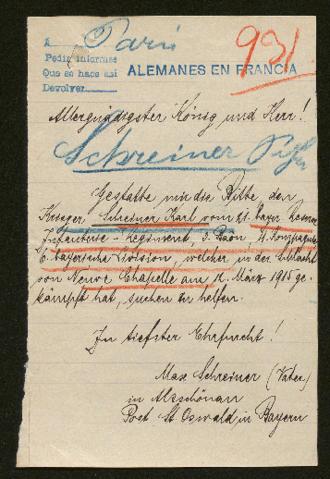 A Paris
Pedir informes
Que se hace así
Devolver
931
ALEMANES EN FRANCIA
Allergnädigster König und Herr!
Schreiner
Gestatte mir die Bitte den
Krieger Schreiner, Karl vom 21. bayer. Reserve
Infanterie-Regiment, 3. Baon, 11. Kompagnie
6. bayerische Division, welcher in der Schlacht
von Neuve Chapelle am 12. März 1915 ge-
kämpft hat, suchen zu helfen.
In tiefster Ehrfurcht!
Max Schreiner (Vater)
in Altschönau
Post St. Oswald in Bayern